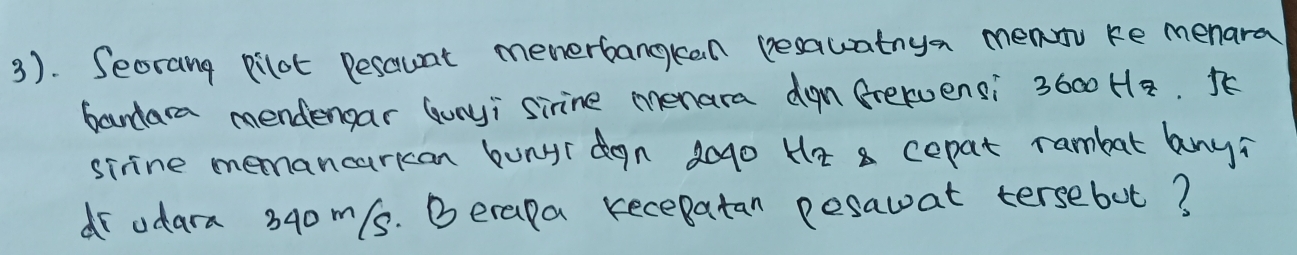 3). Seorang pilot pesawat menerbangkan pesawatnya menuju ke menara
bandara mendengar bunyi sirine menara dgn frekuensi 3600 Hz. Jk
sirine memancarkan bunyi dgn 2040 Hz & cepat rambat bunyi
di udara 340 m/s. Berapa kecepatan pesawat tersebut ?